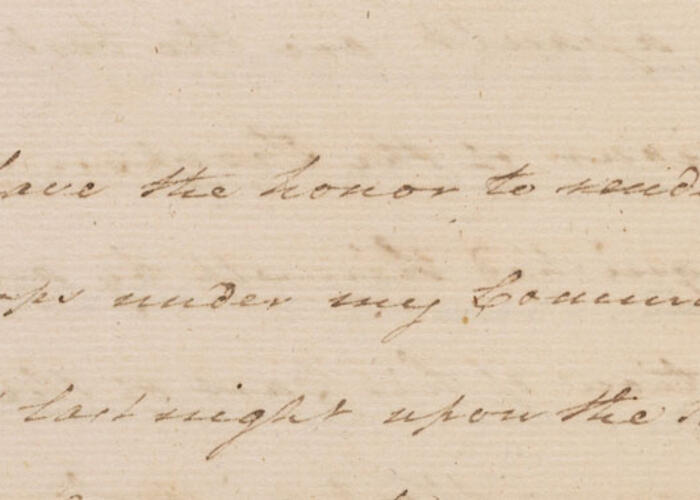 have the honor to send
ops under my Comm
last night upon the